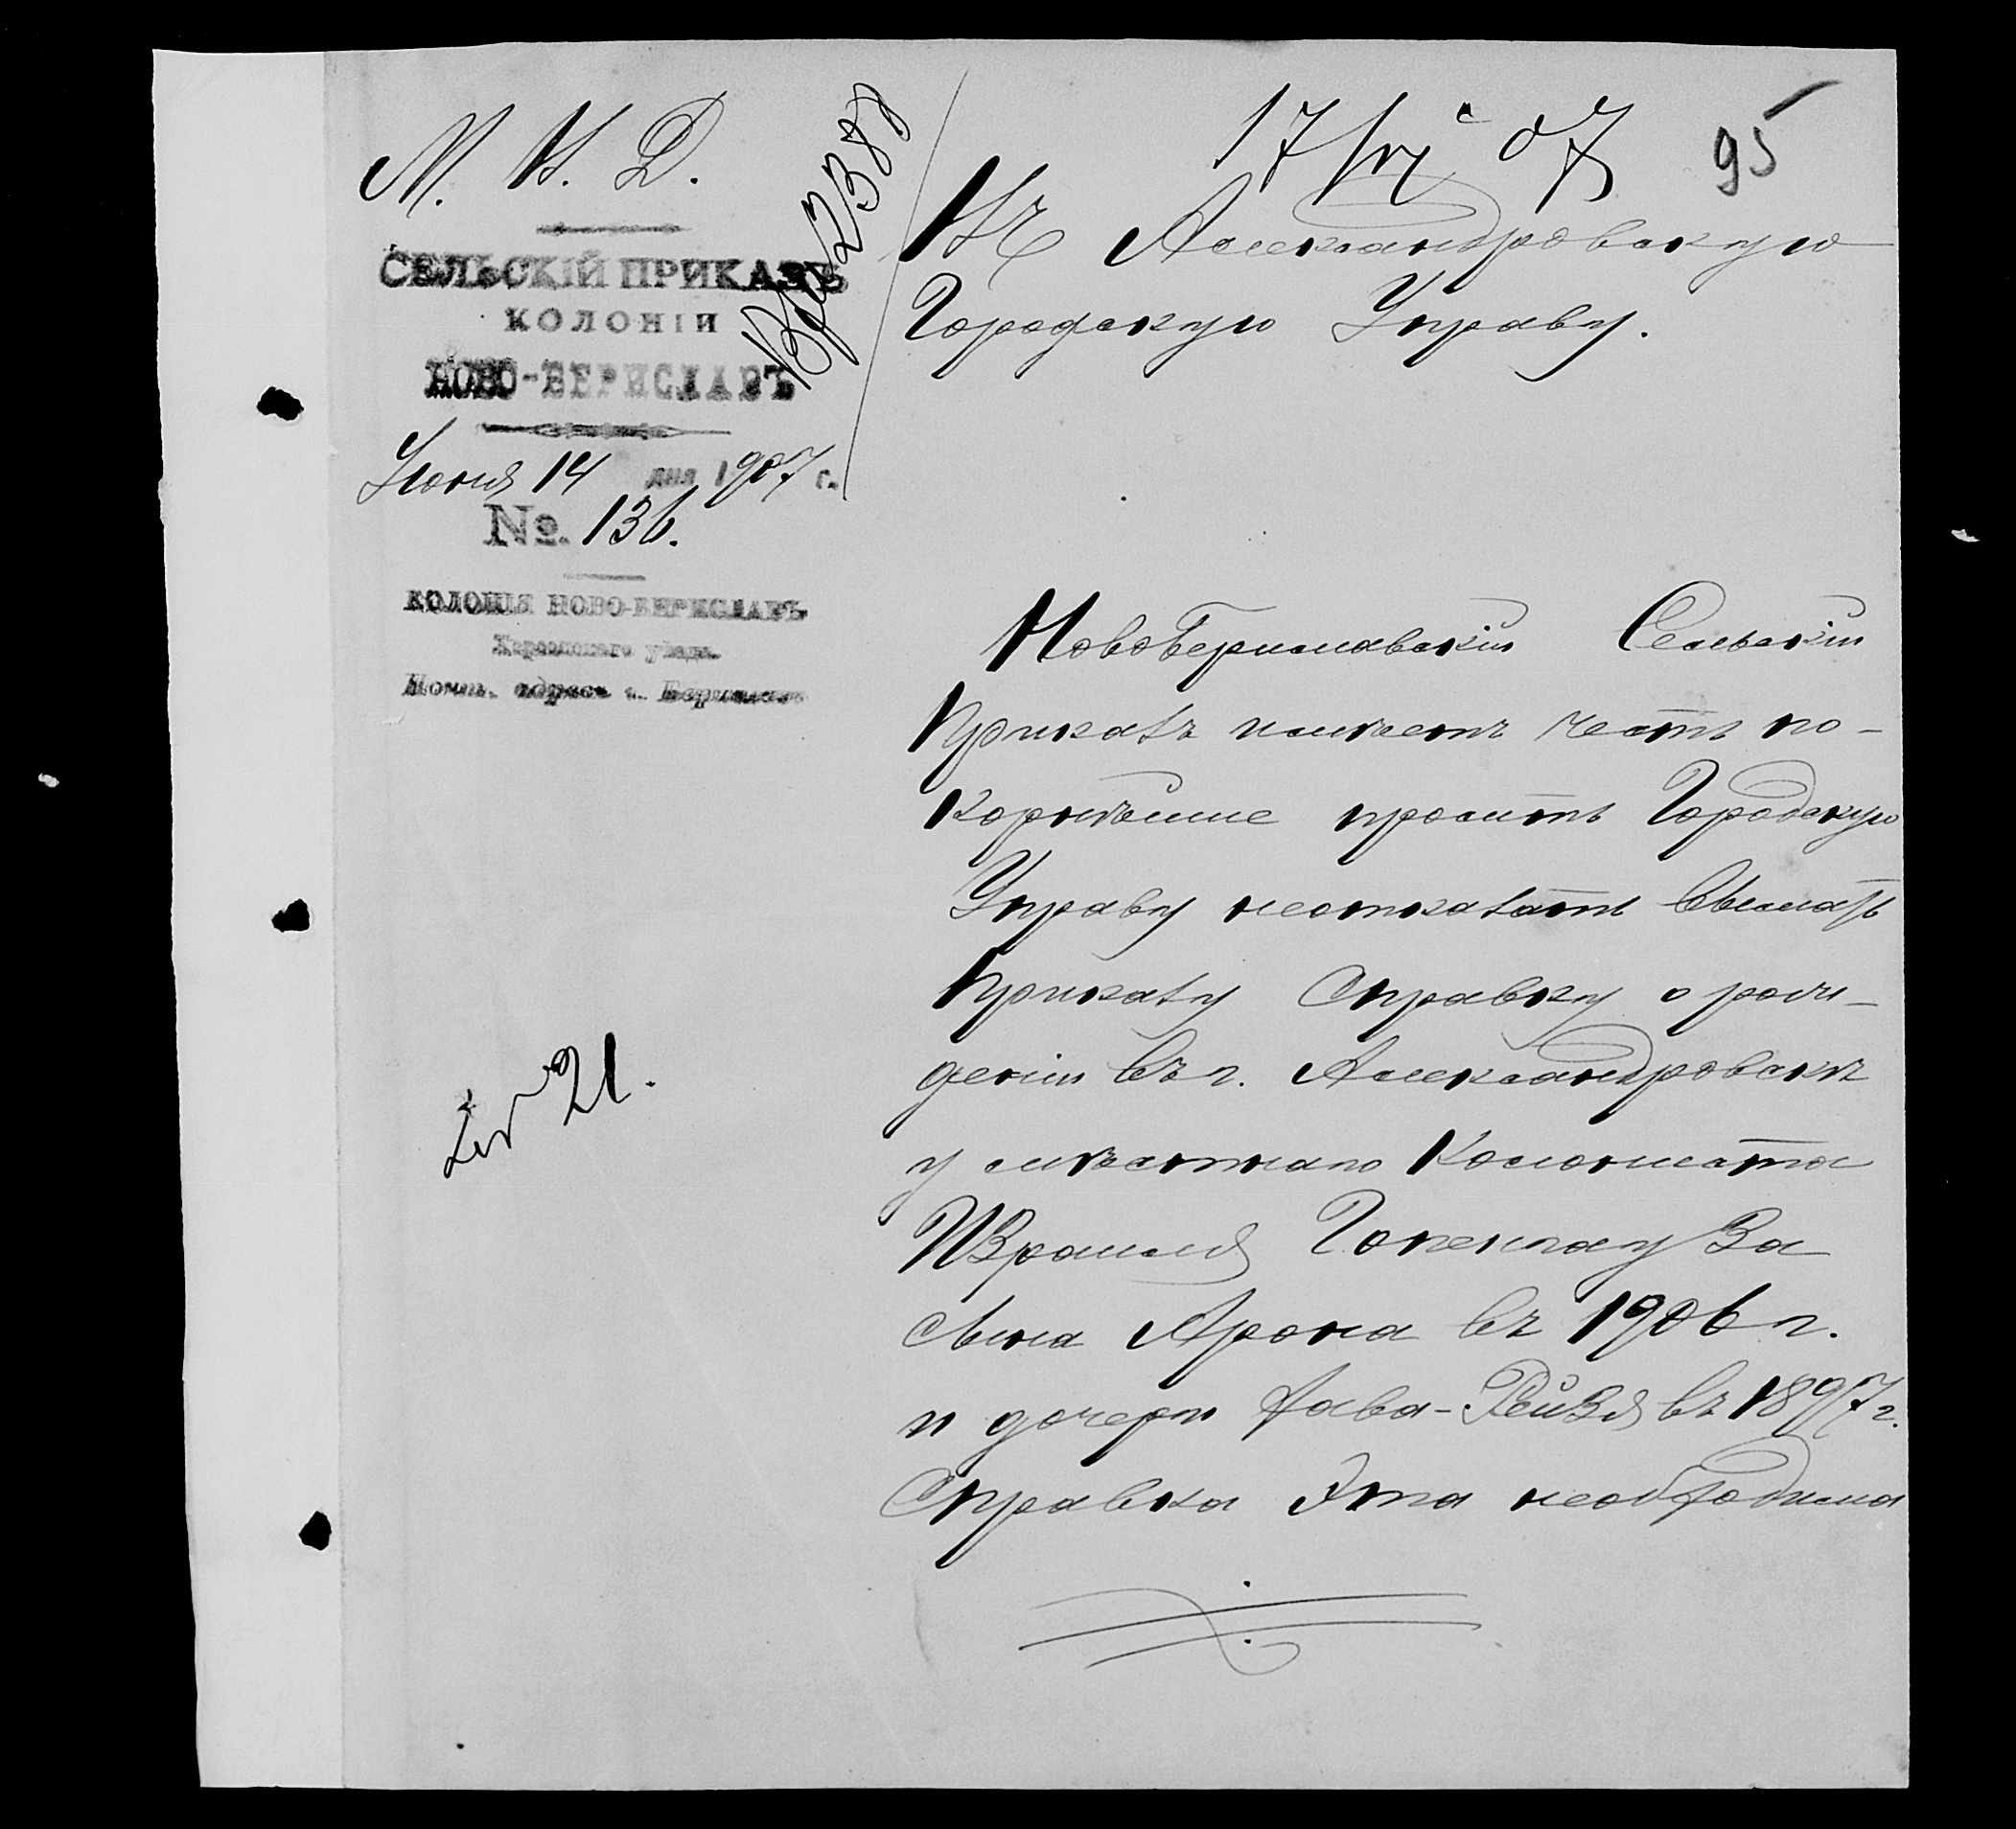 95
М. В. Д.
СЕЛЬСКІЙ ПРИКАЗЪ
КОЛОНІИ
НОВО-БЕРИСЛАВЪ
Іюня 14 дня 1907 г.
№ 136.
КОЛОНІЯ НОВО-БЕРИСЛАВЪ
Херсонскаго уѣзда.
Почт. адресъ г. Бериславъ
2388
Въ Александровскую
Городскую Управу.
Новобериславскій Сельскій
Приказъ имѣетъ честь по-
корнѣйше просить Городскую
Управу неотказать выслать
Приказу справку о рож-
деніи въ г. Александровскѣ
у мѣстнаго колониста
Израиля
сына Арона въ 1906 г.
и дочери Хава-Рейзя въ 1897 г.
Справка эта необходима
21.